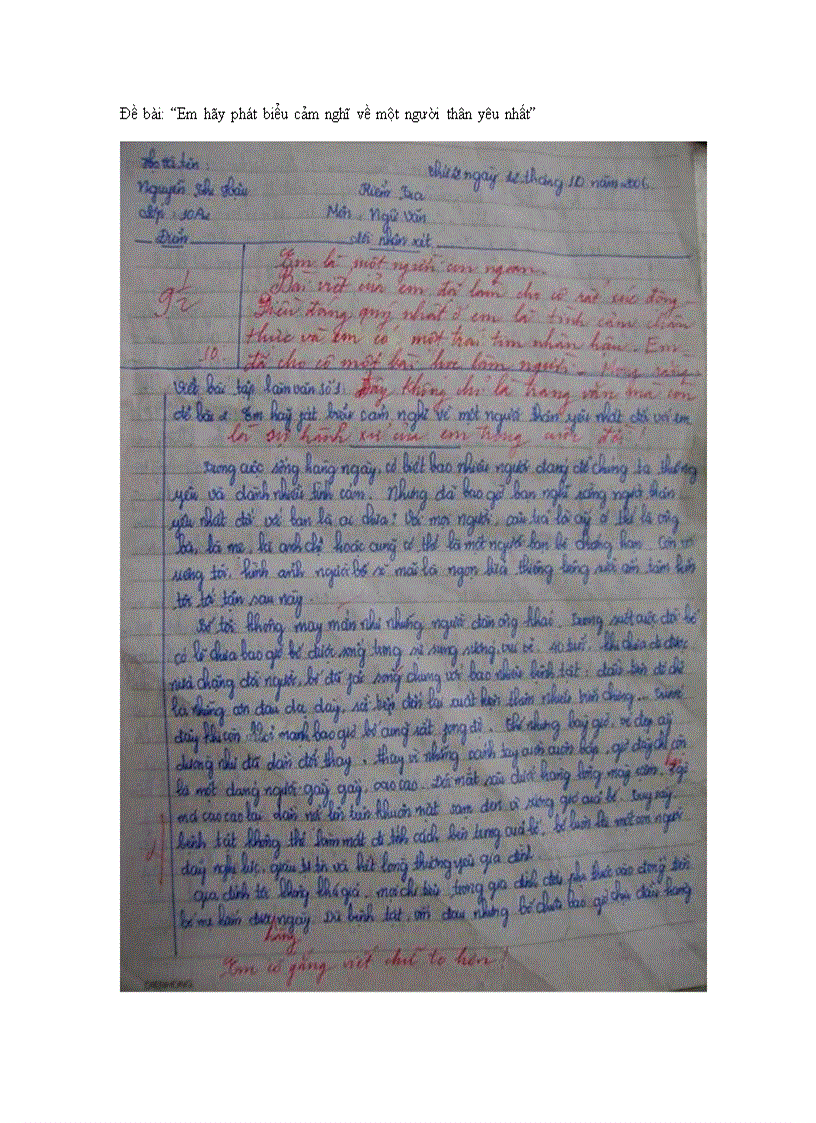 Đề bài: “Em hãy phát biểu cảm nghĩ về một người thân yêu nhất”
Họ và tên: ngày tháng 10 năm 2006
Nguyễn Thị Hậu Kiểm tra
Lớp: 10A Môn: Ngữ Văn
Điểm Lời nhận xét
Em là một người con ngoan.
Bài viết của em đã làm cho cô rất xúc động.
9 1/2 Điều đáng quý nhất ở em là tình cảm chân
thực và em có một trái tim nhân hậu. Em
10 đã cho cô một bài học làm người. Mong rằng
Viết bài tập làm văn số 1: đây không chỉ là trang văn mà còn
đề bài: Em hãy phát biểu cảm nghĩ về một người thân yêu nhất đối với em
là sự hành xử của em trong cuộc đời!
Trong cuộc sống hàng ngày, có biết bao nhiêu người đáng để chúng ta thương
yêu và dành nhiều tình cảm. Nhưng đã bao giờ bạn nghĩ rằng người thân
yêu nhất đối với bạn là ai chưa? Với mọi người, câu trả lời ấy có thể là ông
bà, là mẹ, là anh chị hoặc cũng có thể là một người bạn bè chẳng hạn. Còn với
riêng tôi, hình ảnh người bố sẽ mãi là ngọn lửa thiêng liêng sưởi ấm tâm hồn
tôi tới tận sau này.
Bố tôi không may mắn như những người đàn ông khác. Trong suốt cuộc đời bố
có lẽ chưa bao giờ bố được sống trong sự sung sướng, vui vẻ. 40 tuổi khi chưa đi được
nửa chặng đời người, bố đã phải sống chung với bao nhiêu bệnh tật: đầu tiên đó chỉ
là những cơn đau dạ dày, rồi tiếp đến lại xuất hiện thêm nhiều biến chứng... Trước
đây khi còn khoẻ mạnh bao giờ bố cũng rất phong độ. Thế nhưng bây giờ, vẻ đẹp ấy
dường như đã dần đổi thay, thay vì những cánh tay cuồn cuộn bắp, giờ đây chỉ còn
là một dáng người gầy gầy, cao cao. Đôi mắt sâu dưới hàng lông mày rậm,
má cao cao lại dần nổi lên trên khuôn mặt sạm đen vì sương gió của bố. Tuy vậy,
bệnh tật không thể làm mất đi tính cách bên trong của bố, bố luôn là một con người
đầy nghị lực, giàu và hết lòng thương yêu gia đình.
Gia đình tôi không khá giả, mọi chi tiêu trong gia đình đều phụ thuộc vào đồng tiền
bố mẹ kiếm được hàng ngày. Dù bệnh tật, ốm đau nhưng bố chưa bao giờ chịu đầu hàng
Em cố gắng viết chữ to hơn!